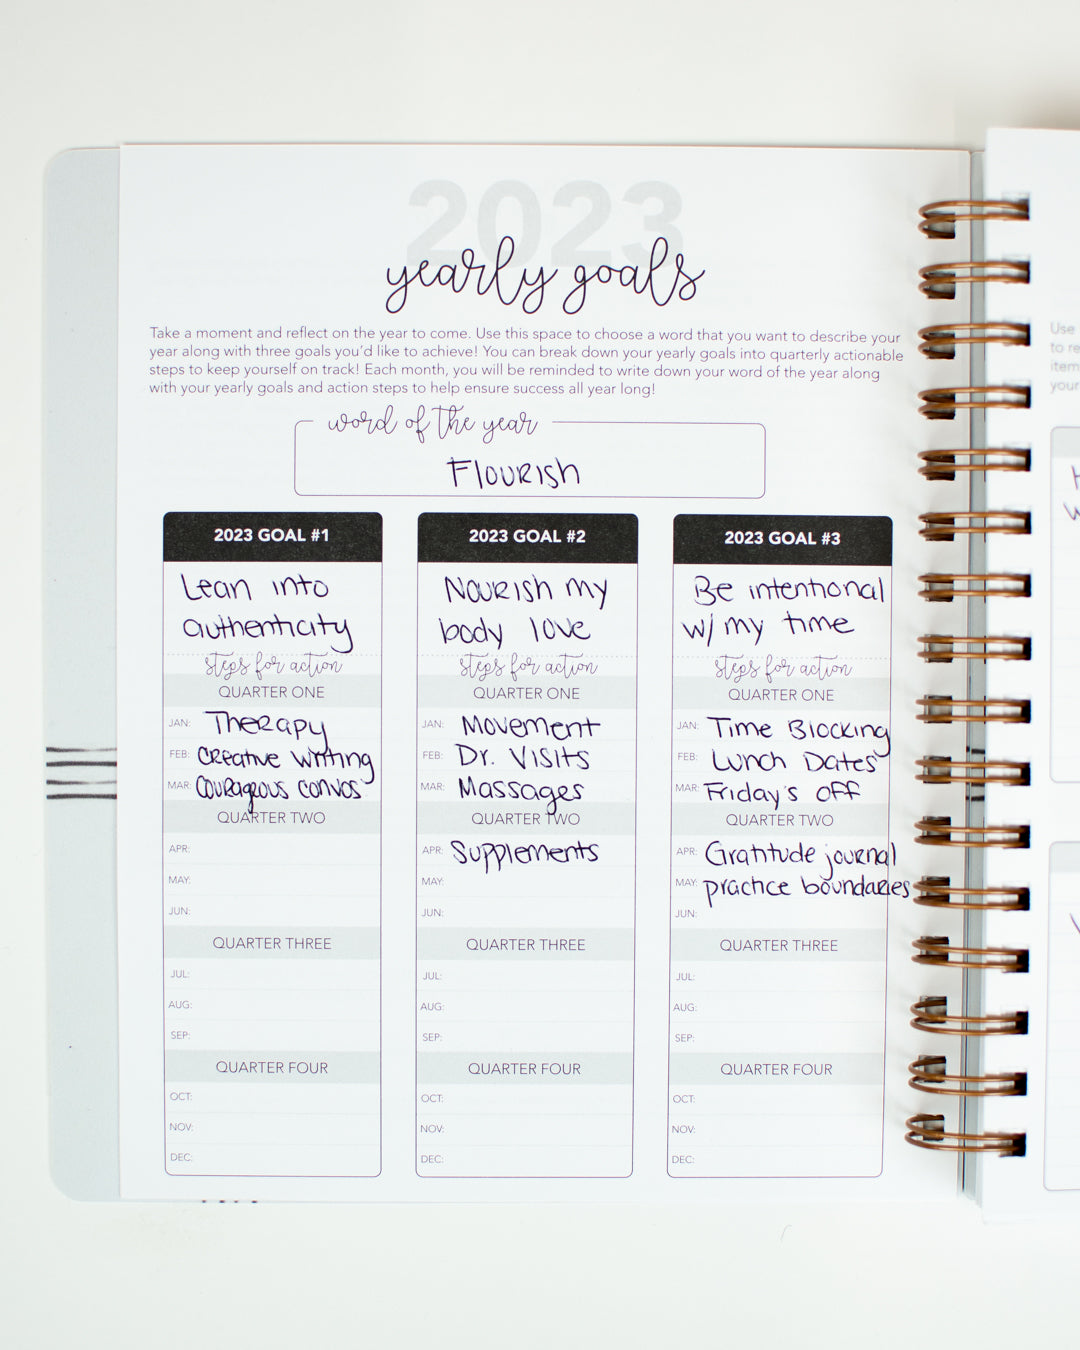 2023
yearly goals
Take a moment and reflect on the year to come. Use this space to choose a word that you want to describe your
year along with three goals you'd like to achieve! You can break down your yearly goals into quarterly actionable
steps to keep yourself on track! Each month, you will be reminded to write down your word of the year along
with your yearly goals and action steps to help ensure success all year long!
word of the year
Flourish
2023 GOAL #1
Lean into
authenticity
steps for action
QUARTER ONE
JAN: Therapy
FEB: Creative Writing
MAR: Courageous convos
QUARTER TWO
APR:
MAY:
JUN:
QUARTER THREE
JUL:
AUG:
SEP:
QUARTER FOUR
OCT:
NOV:
DEC:
2023 GOAL #2
Nourish my
body love
steps for action
QUARTER ONE
JAN: Movement
FEB: Dr. Visits
MAR: Massages
QUARTER TWO
APR: Supplements
MAY:
JUN:
QUARTER THREE
JUL:
AUG:
SEP:
QUARTER FOUR
OCT:
NOV:
DEC:
2023 GOAL #3
Be intentional
w/ my time
steps for action
QUARTER ONE
JAN: Time Blocking
FEB: Lunch Dates
MAR: Friday's off
QUARTER TWO
APR: Gratitude journal
MAY: practice boundaries
JUN:
QUARTER THREE
JUL:
AUG:
SEP:
QUARTER FOUR
OCT:
NOV:
DEC:
Use
to re
item
your